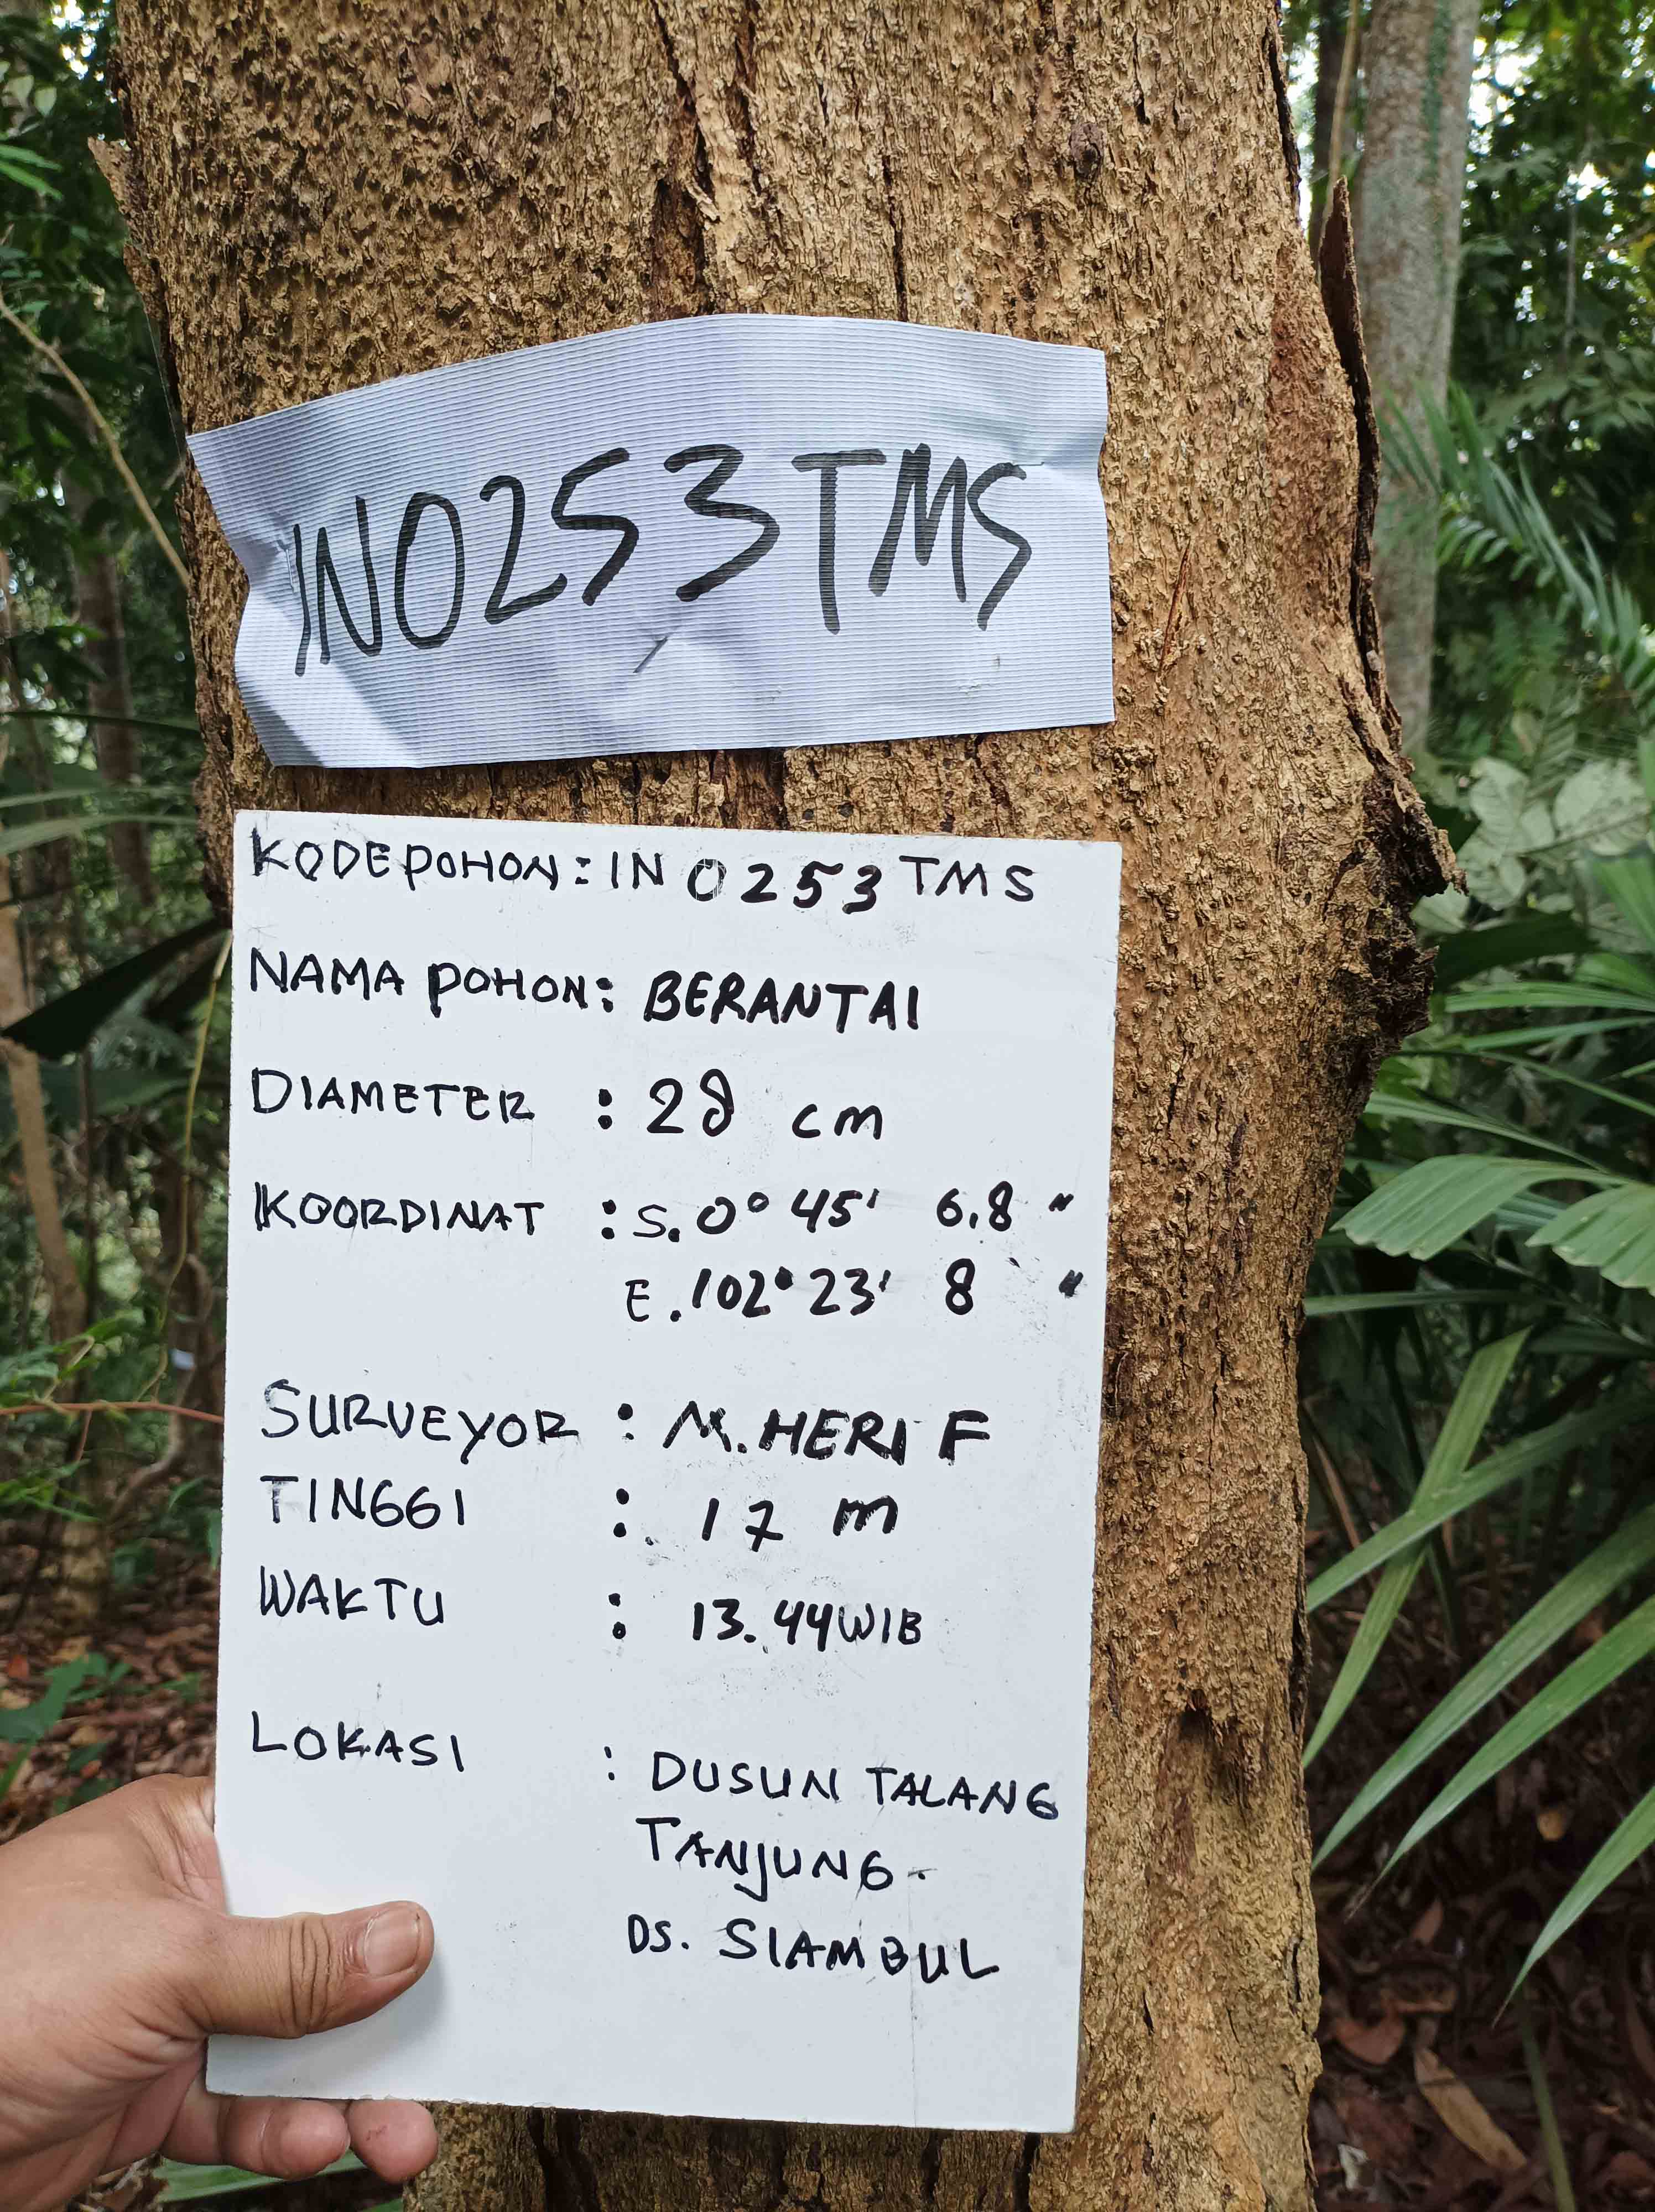 IN0253TMS
KODE POHON : IN 0253 TMS
NAMA POHON : BERANTAI
DIAMETER : 28 cm
KOORDINAT : S. 0° 45' 6.8 "
E. 102° 23' 8 "
SURVEYOR : M. HERI F
TINGGI : 17 m
WAKTU : 13.44 WIB
LOKASI : DUSUN TALANG
TANJUNG.
DS. SIAMBUL